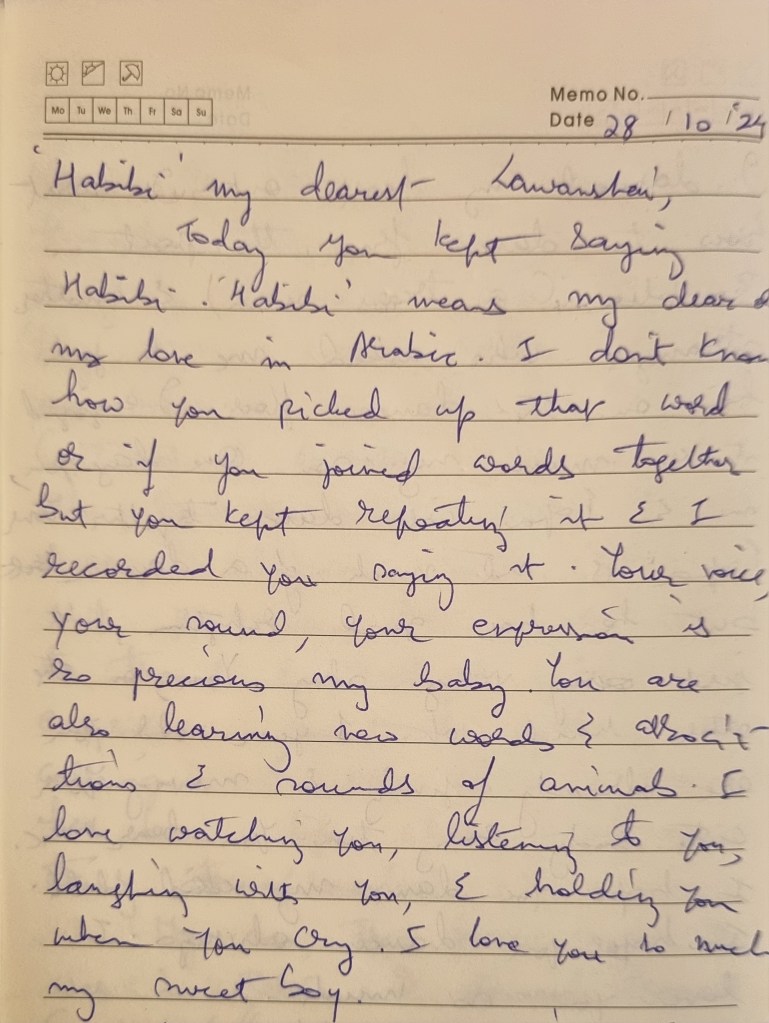 Mo Tu We Th Fr Sa Su
Memo No.
Date 28 / 10 / '24
'Habibi' my dearest
Today you kept saying
Habibi. 'Habibi' means my dear &
my love in Arabic. I don't know
how you picked up that word
or if you joined words together
but you kept repeating it & I
recorded you saying it. Your voice,
your sound, your expression is
so precious my baby. You are
also learning new words & associa-
tions & sounds of animals. I
love watching you, listening to you,
laughing with you, & holding you
when you cry. I love you so much
my sweet boy.